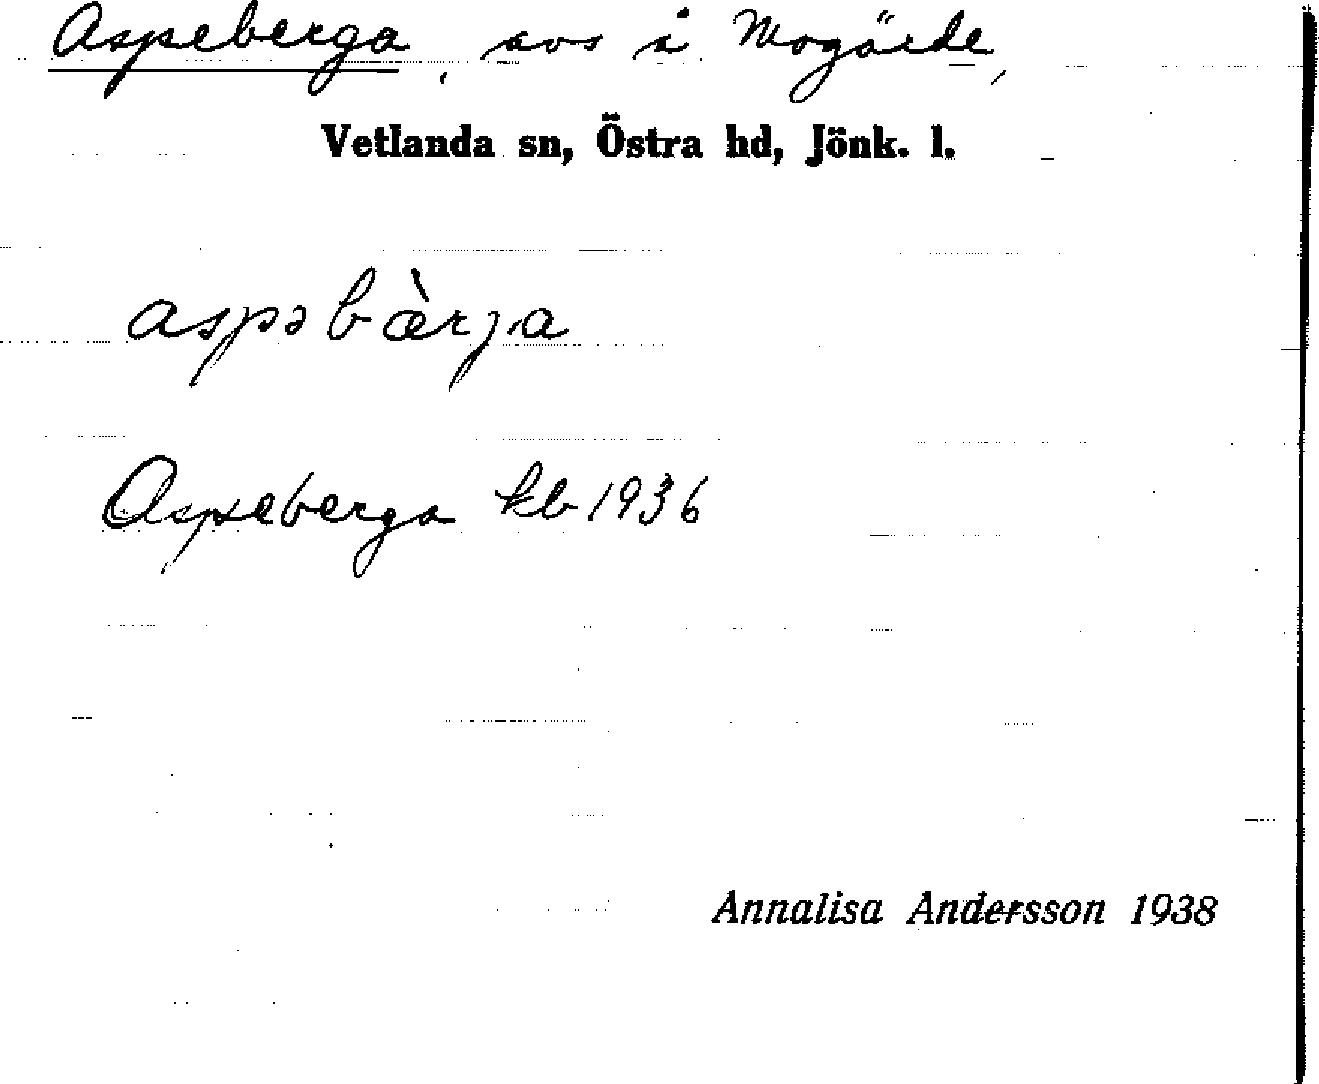 Aspeberga, avs i Mogärde,
Vetlanda sn, Östra hd, Jönk. l.
aspəbæ̀rja
Aspeberga kb 1936
Annalisa Andersson 1938